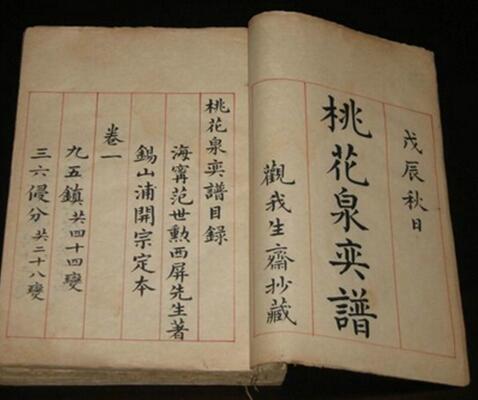 戊辰秋日
桃花泉奕譜
觀我生齋抄藏
桃花泉奕譜目錄
海寧范世勳西屏先生著
錫山浦開宗定本
卷一
九五鎮共四十四變
三六侵分共二十八變